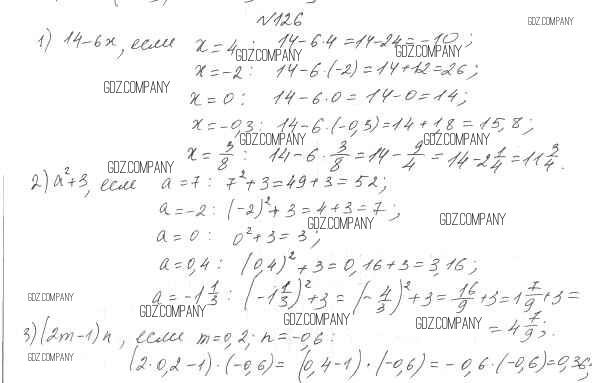 №126
GDZ.COMPANY
1) 14-6x, если x=4; 14-6·4=14-24=-10;
GDZ.COMPANY GDZ.COMPANY
x=-2: 14-6·(-2)=14+12=26;
GDZ.COMPANY
x=0: 14-6·0=14-0=14;
x=-0,3: 14-6·(-0,3)=14+1,8=15,8;
GDZ.COMPANY GDZ.COMPANY
x=3/8: 14-6·3/8=14-9/4=14-2 1/4=11 3/4.
GDZ.COMPANY
2) a²+3, если a=7: 7²+3=49+3=52;
a=-2: (-2)²+3=4+3=7;
GDZ.COMPANY GDZ.COMPANY
a=0: 0²+3=3;
a=0,4: (0,4)²+3=0,16+3=3,16;
GDZ.COMPANY
a=-1 1/3: (-1 1/3)²+3=(-4/3)²+3=16/9+3=1 7/9+3=
GDZ.COMPANY GDZ.COMPANY GDZ.COMPANY
=4 7/9;
3) (2m-1)n, если m=0,2; n=-0,6:
GDZ.COMPANY
(2·0,2-1)·(-0,6)=(0,4-1)·(-0,6)=-0,6·(-0,6)=0,36;